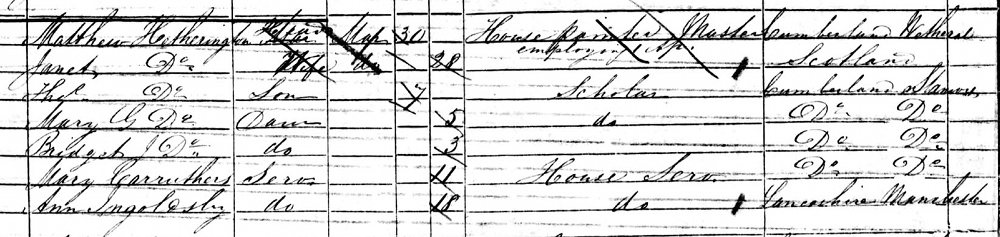 Matthew Hetherington Head Mar 30 House painter Master Cumberland Wetheral
employing 1 Ap.
Janet Do Wife Do 28 Scotland
Thos Do Son 7 Scholar Cumberland Stanwix
Mary G Do Daur 5 do Do Do
Bridget J Do do 3 Do Do
Mary Carruthers Serv. 11 House Serv. Do Do
Ann Ingoldsby do 18 do Lancashire Manchester